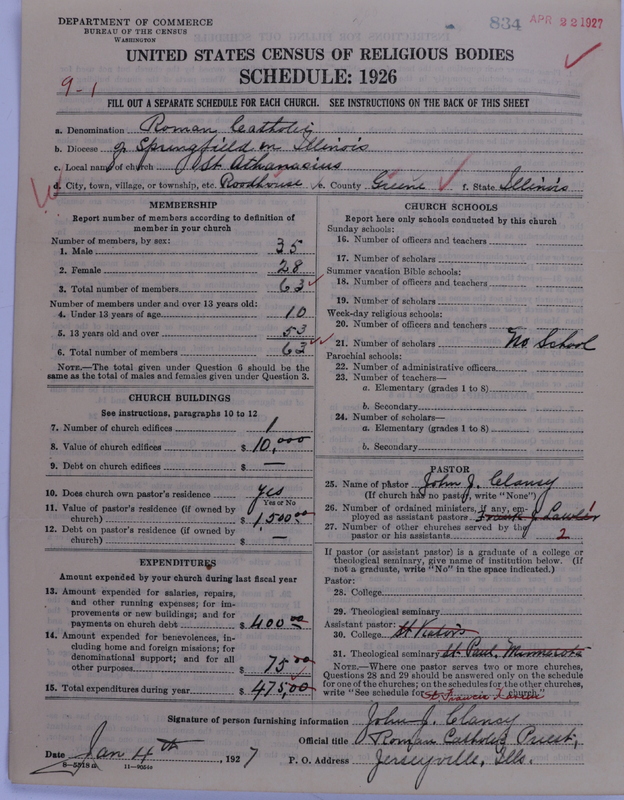 DEPARTMENT OF COMMERCE
BUREAU OF THE CENSUS
WASHINGTON
834 APR 22 1927
UNITED STATES CENSUS OF RELIGIOUS BODIES
SCHEDULE: 1926
9-1
FILL OUT A SEPARATE SCHEDULE FOR EACH CHURCH. SEE INSTRUCTIONS ON THE BACK OF THIS SHEET
a. Denomination Roman Catholic
b. Diocese of Springfield in Illinois
c. Local name of church St Athanasius
d. City, town, village, or township, etc. Roodhouse e. County Greene f. State Illinois
MEMBERSHIP
Report number of members according to definition of
member in your church
Number of members, by sex:
1. Male 35
2. Female 28
3. Total number of members 63
Number of members under and over 13 years old:
4. Under 13 years of age 10
5. 13 years old and over 53
6. Total number of members 63
NOTE.—The total given under Question 6 should be the
same as the total of males and females given under Question 3.
CHURCH BUILDINGS
See instructions, paragraphs 10 to 12
7. Number of church edifices 1
8. Value of church edifices $ 10,000
9. Debt on church edifices $ —
10. Does church own pastor's residence yes
Yes or No
11. Value of pastor's residence (if owned by
church) $ 1,500 00
12. Debt on pastor's residence (if owned by
church) $ —
EXPENDITURES
Amount expended by your church during last fiscal year
13. Amount expended for salaries, repairs,
and other running expenses; for im-
provements or new buildings; and for
payments on church debt $ 400 00
14. Amount expended for benevolences, in-
cluding home and foreign missions; for
denominational support; and for all
other purposes $ 75 00
15. Total expenditures during year $ 475,00
CHURCH SCHOOLS
Report here only schools conducted by this church
Sunday schools:
16. Number of officers and teachers
17. Number of scholars
Summer vacation Bible schools:
18. Number of officers and teachers
19. Number of scholars
Week-day religious schools:
20. Number of officers and teachers
21. Number of scholars No School
Parochial schools:
22. Number of administrative officers
23. Number of teachers—
a. Elementary (grades 1 to 8)
b. Secondary
24. Number of scholars—
a. Elementary (grades 1 to 8)
b. Secondary
PASTOR
25. Name of pastor John J. Clancy
(If church has no pastor, write "None")
26. Number of ordained ministers, if any, em-
ployed as assistant pastors Frank J. Lawler 1
27. Number of other churches served by the
pastor or his assistants 2
If pastor (or assistant pastor) is a graduate of a college or
theological seminary, give name of institution below. (If
not a graduate, write "No" in the space indicated.)
Pastor:
28. College
29. Theological seminary
Assistant pastor:
30. College St
31. Theological seminary St. Paul, Minnesota
NOTE.—Where one pastor serves two or more churches,
Questions 28 and 29 should be answered only on the schedule
for one of the churches; on the schedules for the other churches,
write "See schedule for St Francis Xavier church."
Signature of person furnishing information John J. Clancy
Official title Roman Catholic Priest,
Date Jan 4th, 1927 P. O. Address Jerseyville, Ills.
8—5518 a 11—9554